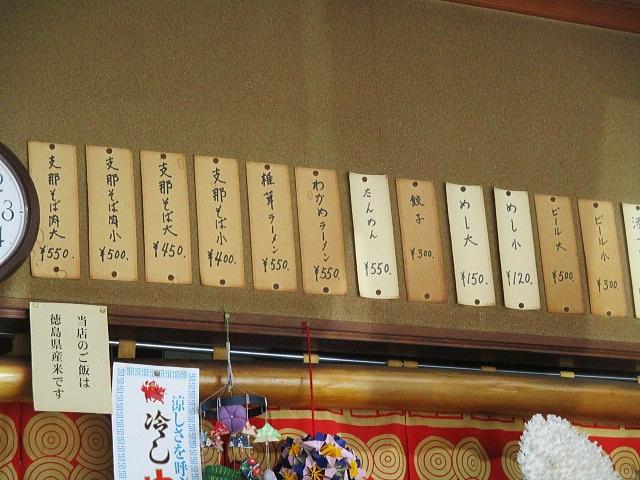 支那そば肉大
¥550.
支那そば肉小
¥500.
支那そば大
¥450.
支那そば小
¥400.
椎茸ラーメン
¥550.
わかめラーメン
¥550.
たんめん
¥550.
餃子
¥300.
めし大
¥150.
めし小
¥120.
ビール大
¥500.
ビール小
¥300.
当店のご飯は
徳島県産米です
涼しさを呼
冷し
2
3
4